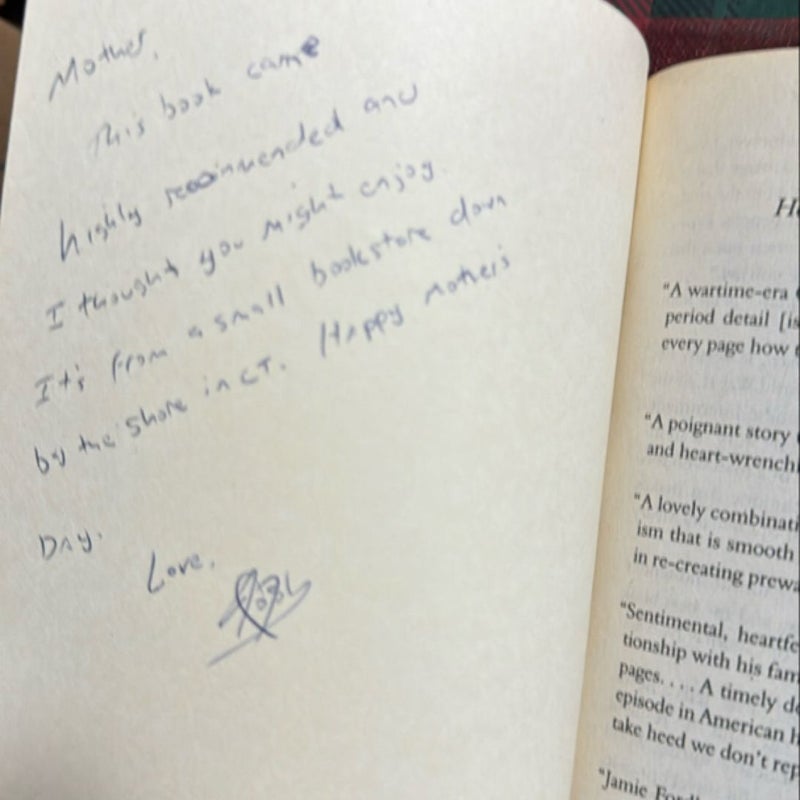 Mother,
This book came
highly recommended and
I thought you might enjoy.
It's from a small bookstore down
by the shore in CT. Happy Mother's
Day.
Love,
H
"A wartime-era
period detail [is
every page how
"A poignant story
and heart-wrench
"A lovely combinati
ism that is smooth
in re-creating prewa
"Sentimental, heartfe
tionship with his fam
pages. . . . A timely de
episode in American h
take heed we don't rep
"Jamie Ford